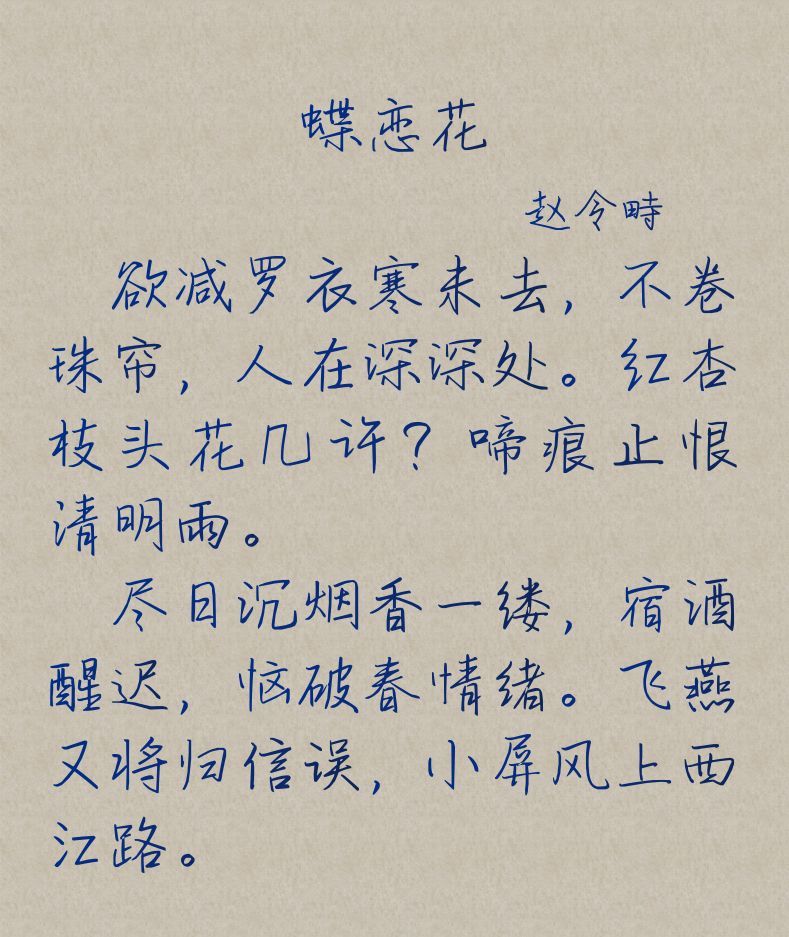 蝶恋花
赵令畤
欲减罗衣寒未去，不卷
珠帘，人在深深处。红杏
枝头花几许？啼痕止恨
清明雨。
尽日沉烟香一缕，宿酒
醒迟，恼破春情绪。飞燕
又将归信误，小屏风上西
江路。